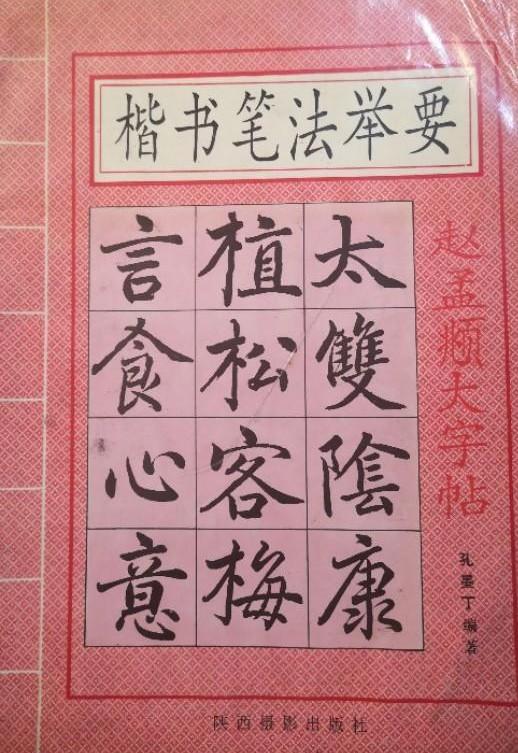 楷书笔法举要
赵孟𫖯大字帖
太雙陰康
植松客梅
言食心意
孔墨丁 编著
陕西摄影出版社